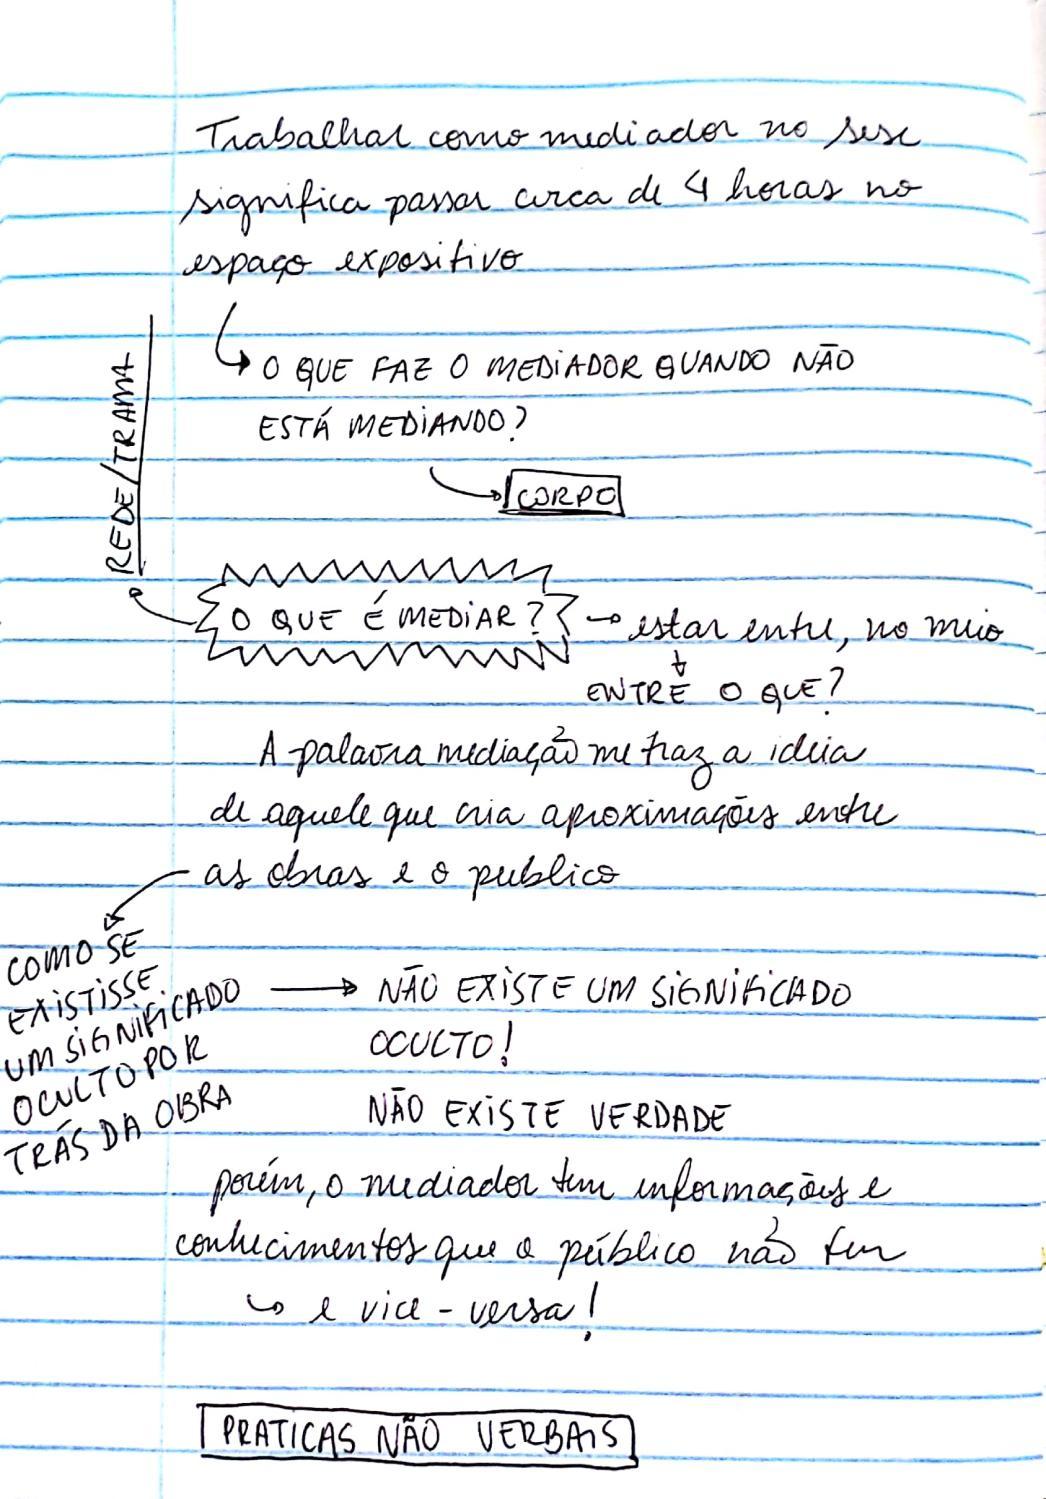 Trabalhar como mediador no sesc
significa passar cerca de 4 horas no
espaço expositivo
O QUE FAZ O MEDIADOR QUANDO NÃO
ESTÁ MEDIANDO?
CORPO
REDE/TRAMA
O QUE É MEDIAR?
estar entre, no meio
ENTRE O QUE?
A palavra mediação me traz a ideia
de aquele que cria aproximações entre
as obras e o publico
COMO SE
EXISTISSE
UM SIGNIFICADO
OCULTO POR
TRÁS DA OBRA
NÃO EXISTE UM SIGNIFICADO
OCULTO!
NÃO EXISTE VERDADE
porém, o mediador tem informações e
conhecimentos que o público não tem
e vice-versa!
PRATICAS NÃO VERBAIS